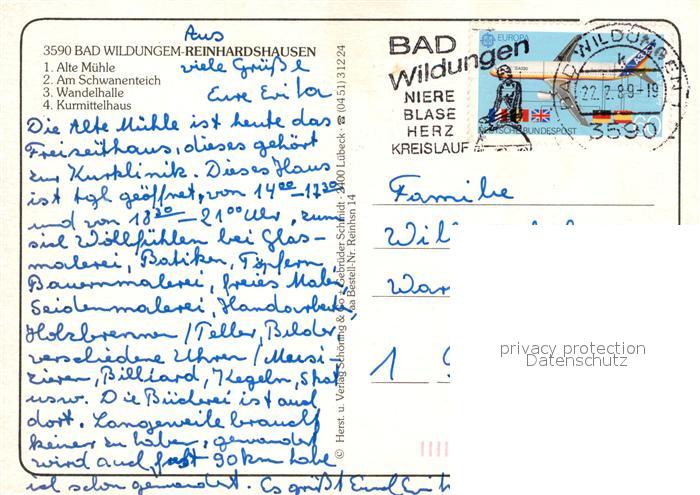 Aus
3590 BAD WILDUNGEM-REINHARDSHAUSEN
1. Alte Mühle
2. Am Schwanenteich
3. Wandelhalle
4. Kurmittelhaus
viele Grüße
Eure Erika
Die Alte Mühle ist heute das
Freizeithaus, dieses gehört
zur Kurklinik. Dieses Haus
ist tgl geöffnet, von 14⁰⁰–17³⁰
und von 18³⁰–21⁰⁰ Uhr, zum
sich Wohlfühlen bei Glas-
malerei, Batiken, Töpfern,
Bauernmalerei, freies Malen,
Seidenmalerei, Handarbeiten,
Holzbrennen / Teller, Bilder,
verschiedene Uhren / Musi-
zieren, Billiard, Kegeln, Skat
usw. Die Bücherei ist auch
dort. Langeweile brauch
keiner zu haben, gewandert
wird auch, fast 90 km habe
ich schon gewandert. Es grüßt
© Herst. u. Verlag Schöning & Co + Gebrüder Schmidt · 2400 Lübeck · ☎ (04 51) 3 12 24
Bestell-Nr. Reinhsn 14
BAD
Wildungen
NIERE
BLASE
HERZ
KREISLAUF
EUROPA
DEUTSCHE BUNDESPOST
BAD WILDUNGEN 1
k
22.2.89-19
3590
Familie
Wil
War
1
privacy protection
Datenschutz